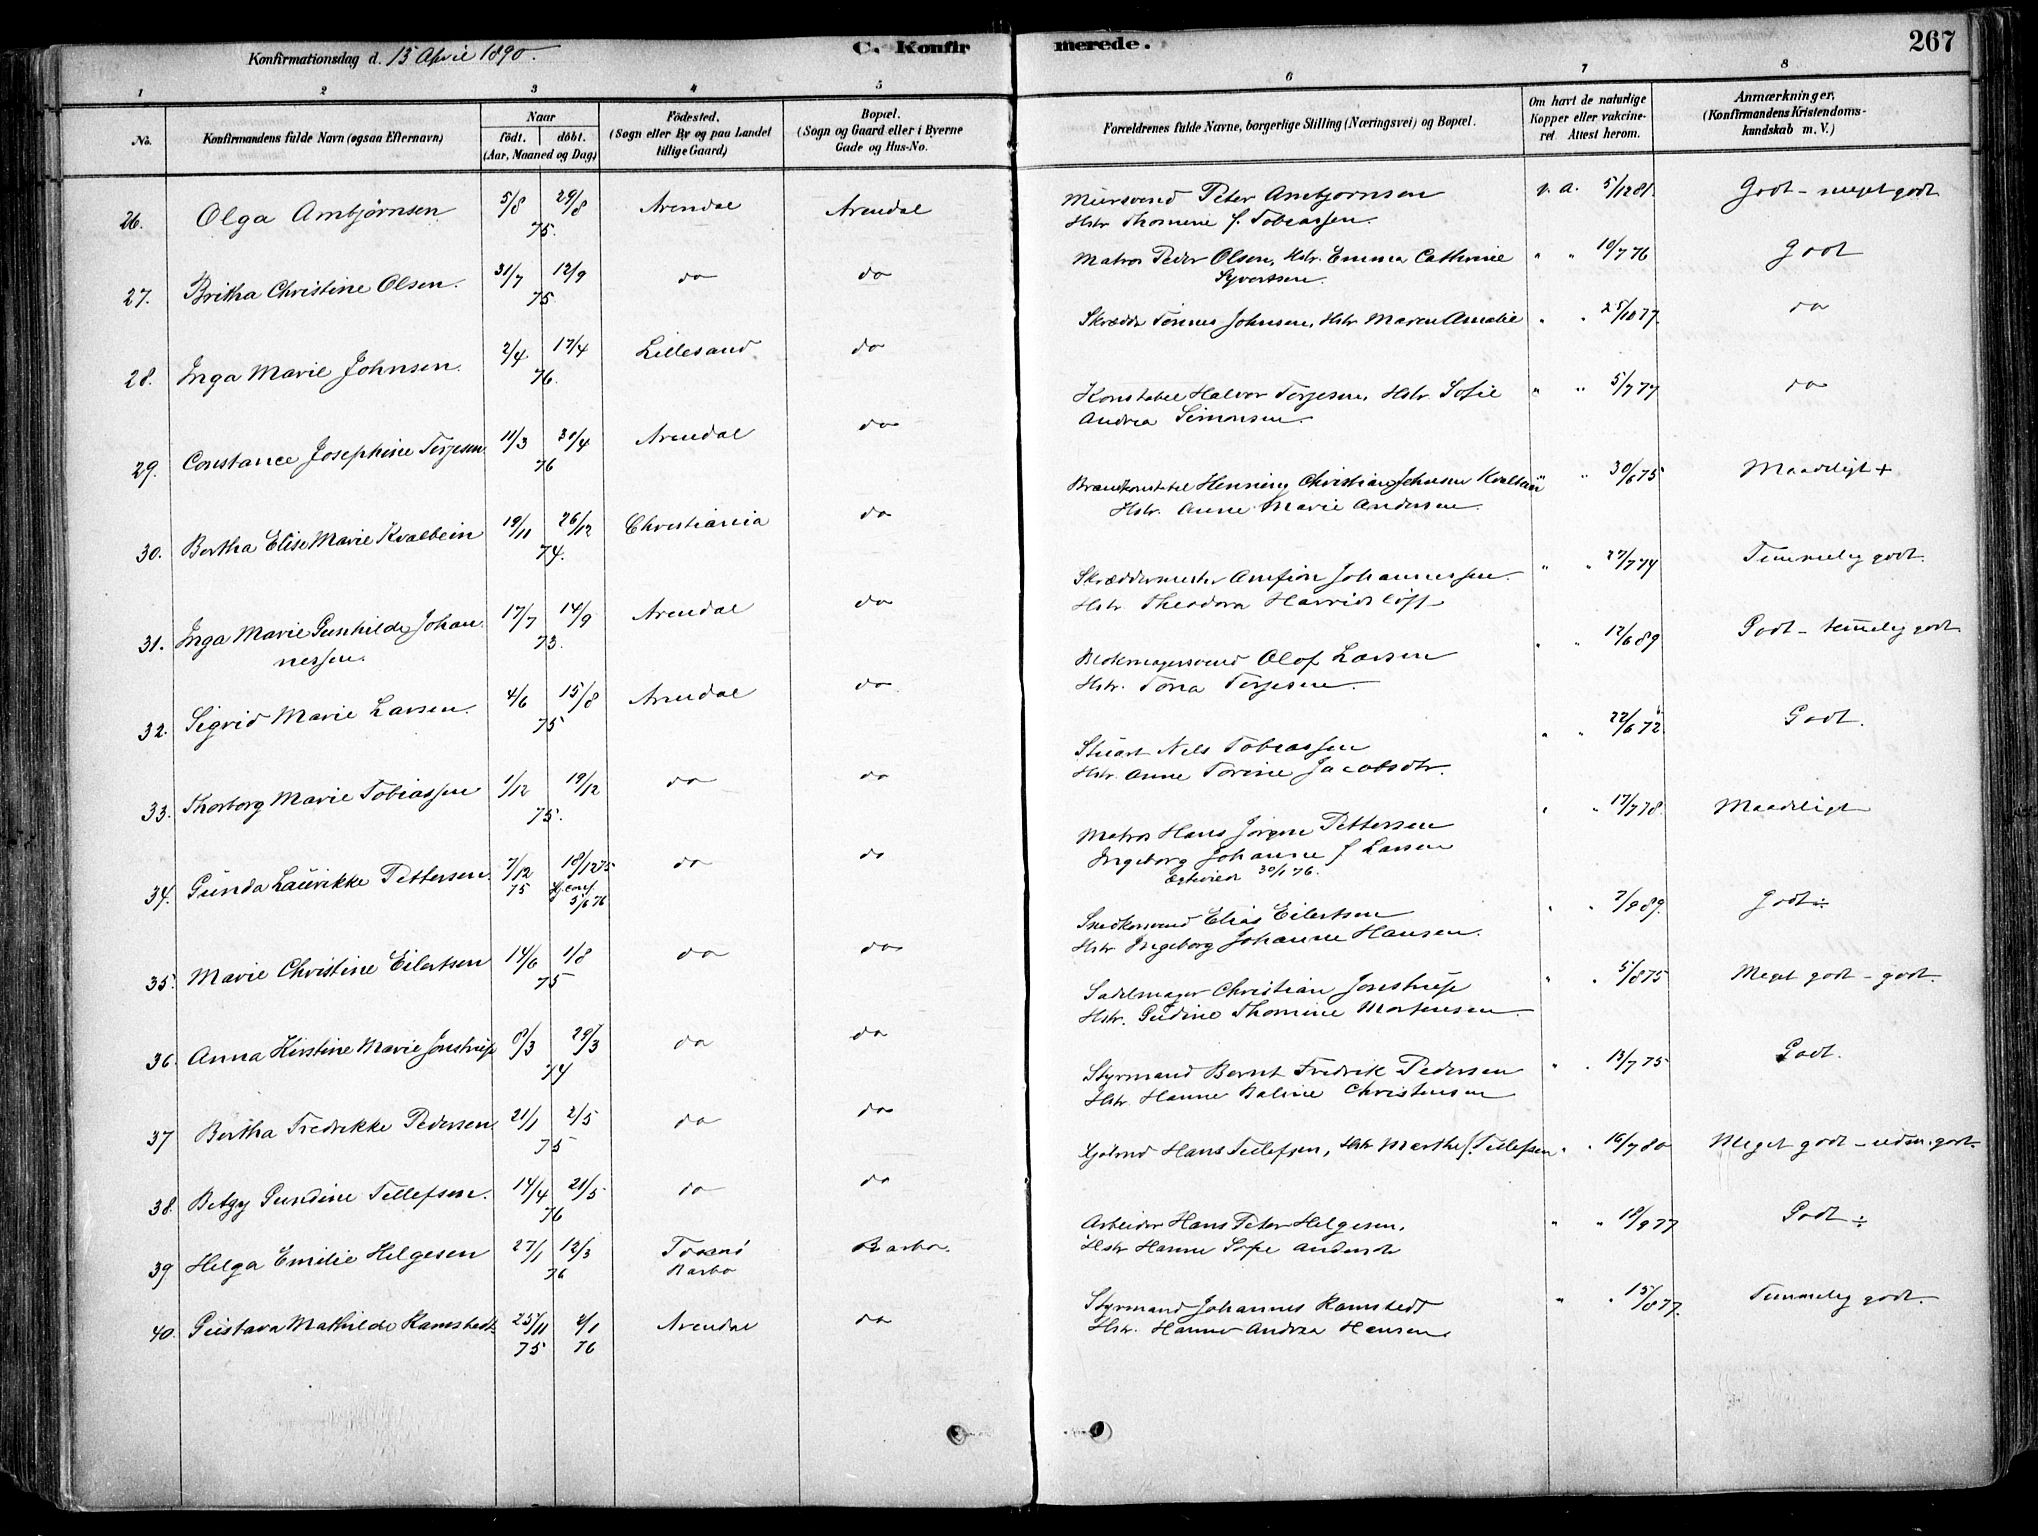 Konfirmationsdag d. 13 April 1890.
C. Konfirmerede.
267
1 2 3 4 5 6 7 8
No.
Konfirmandens fulde Navn (ogsaa Efternavn)
Naar
født. døbt.
(Aar, Maaned og Dag)
Fødested.
(Sogn eller By og paa Landet
tillige Gaard)
Bopæl.
(Sogn og Gaard eller i Byerne
Gade og Hus-No.
Forældrenes fulde Navne, borgerlige Stilling (Næringsvei) og Bopæl.
Om havt de naturlige
Kopper eller vakcine-
ret. Attest herom.
Anmærkninger.
(Konfirmandens Kristendoms-
kundskab m. V.)
26. Olga Ambjørnsen 5/8 29/8 75. Arendal Arendal
Muersvend Peter Ambjørnsen v. a. 5/12 81. Godt - meget godt
Hstr Thomine f. Tobiassen.
27. Britha Christine Olsen. 31/7 12/9 75 do do
Matros Peder Olsen, Hstr. Emma Cathrine " " 10/7 76 Godt
Syvertsen.
28. Inga Marie Johnsen. 2/4 17/4 76. Lillesand do
Skrædder Tønnes Johnsen, Hstr Maren Amalie " " 25/10 77. do
29. Constance Josephine Terjesen 11/3 30/4 76 Arendal do
Konstabel Halvor Terjesen, Hstr. Sofie " " 5/7 77 do
Andrea Simonsen.
30. Bertha Elise Marie Kvalbein 19/11 26/12 74. Christiania do
Brandkonstabel Henning Christian Johnsen Kvalbein " " 30/6 75 Maadeligt +
Hstr. Anne Marie Andersen.
31. Inga Marie Gunhilde Johan 17/7 14/9 73. Arendal do
nessen.
Skræddermester Amfion Johannessen. " " 27/7 74 Temmelig godt.
Hstr Theodora
32. Sigrid Marie Larsen. 4/6 15/8 75 Arendal do
Blokmagersvend Olof Larsen " " 12/6 89 Godt - temelig godt
Hstr. Tora Terjesen.
33. Thorborg Marie Tobiassen 1/12 19/12 75. do do
Stuart Nels Tobiassen " " 22/6 72. Godt.
Hstr. Anne Torine Jacobsdtr.
34. Gunda Laurikke Pettersen. 7/12 75 18/12 75 Hj. conf 5/6 76 do do
Matros Hans Jørgen Pettersen " " 17/7 78. Maadeligt
Ingeborg Johanne f Larsen
Egteviede 30/1 76.
35. Marie Christine Eilertsen 14/6 1/8 75 do do
Snedkersvend Elias Eilertsen " " 7/9 89. Godt ÷
Hstr Ingeborg Johanne Hansen.
36. Anna Kirstine Marie Jonstrup 8/3 29/3 74 do do
Sadelmager Christian Jonstrup " " 5/8 75 Meget godt - godt.
Hstr. Gudine Thomine Mortensen
37 Bertha Fredrikke Pedersen 21/1 2/5 75 do do
Styrmand Bernt Fredrik Pedersen " " 13/7 75 Godt.
Hstr. Hanne Baline Christensen
38. Betzy Gundine Tellefsen. 14/4 21/5 76 do do
Hans Tellefsen, Hstr Marthe f. Tellefsen " " 16/7 80 Meget godt - udm. godt.
39 Helga Emilie Helgesen 27/1 12/3 76 Tromø Barbo.
Barbo
Arbeider Hans Peter Helgesen. " " 18/9 77 Godt ÷
Hstr Hanne Sofie Andersdt
40. Gustava Mathilde Ramstedt 25/11 75 2/1 76 Arendal do
Styrmand Johannes Ramstedt " " 15/8 77. Temmelig godt.
Hstr. Hanne Andrea Hansen.